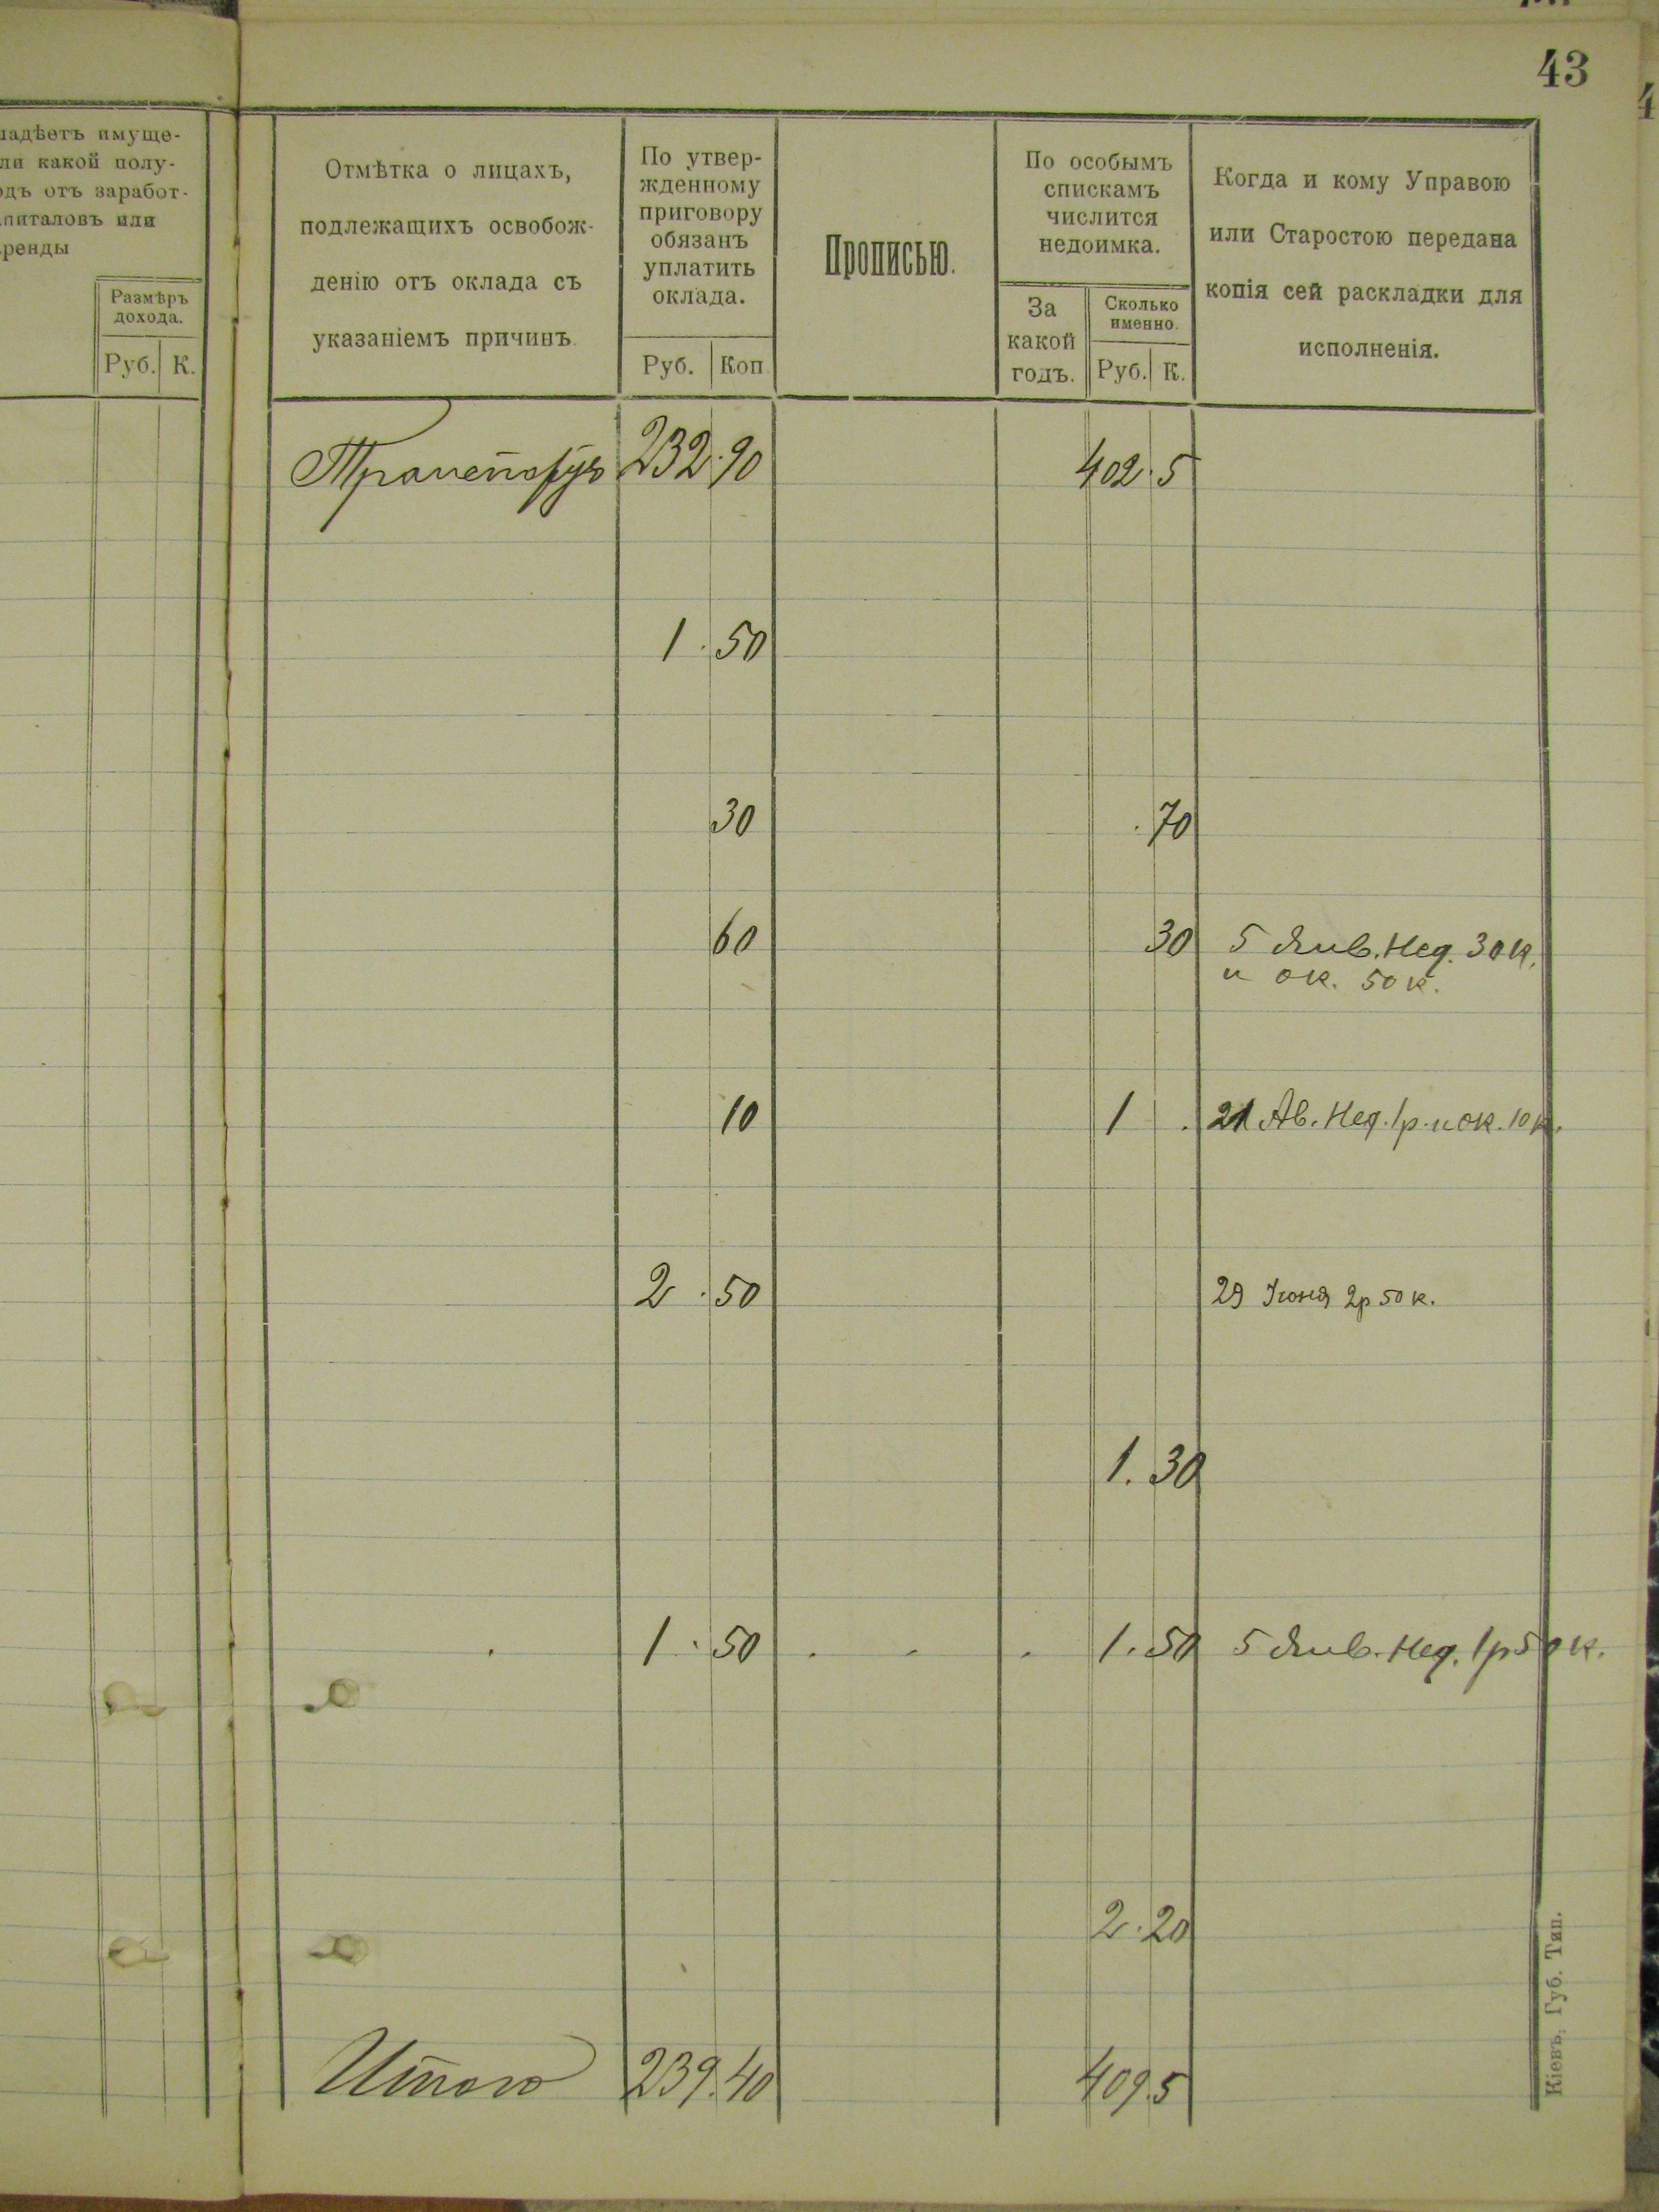 43
ладѣетъ имуще-
ли какой полу-
одъ отъ заработ-
апиталовъ или
аренды
Размѣръ
дохода.
Руб. К.
Отмѣтка о лицахъ,
подлежащихъ освобож-
денію отъ оклада съ
указаніемъ причинъ.
По утвер-
жденному
приговору
обязанъ
уплатить
оклада.
Руб. Коп.
Прописью.
По особымъ
спискамъ
числится
недоимка.
За
какой
годъ.
Сколько
именно.
Руб. К.
Когда и кому Управою
или Старостою передана
копія сей раскладки для
исполненія.
Транспортъ 232.90 402.5
1.50
30 .70
60 30 5 Янв. Нед. 30 к.
и ок. 50 к.
10 1 . 21 Ав. Нед. 1р. и ок. 10 к.
2.50 29 Іюня 2р 50 к.
1.30
1.50 1.50 5 Янв. Нед. 1р 50 к.
2.20
Итого 239.40 409.5
Кіевъ, Губ. Тип.